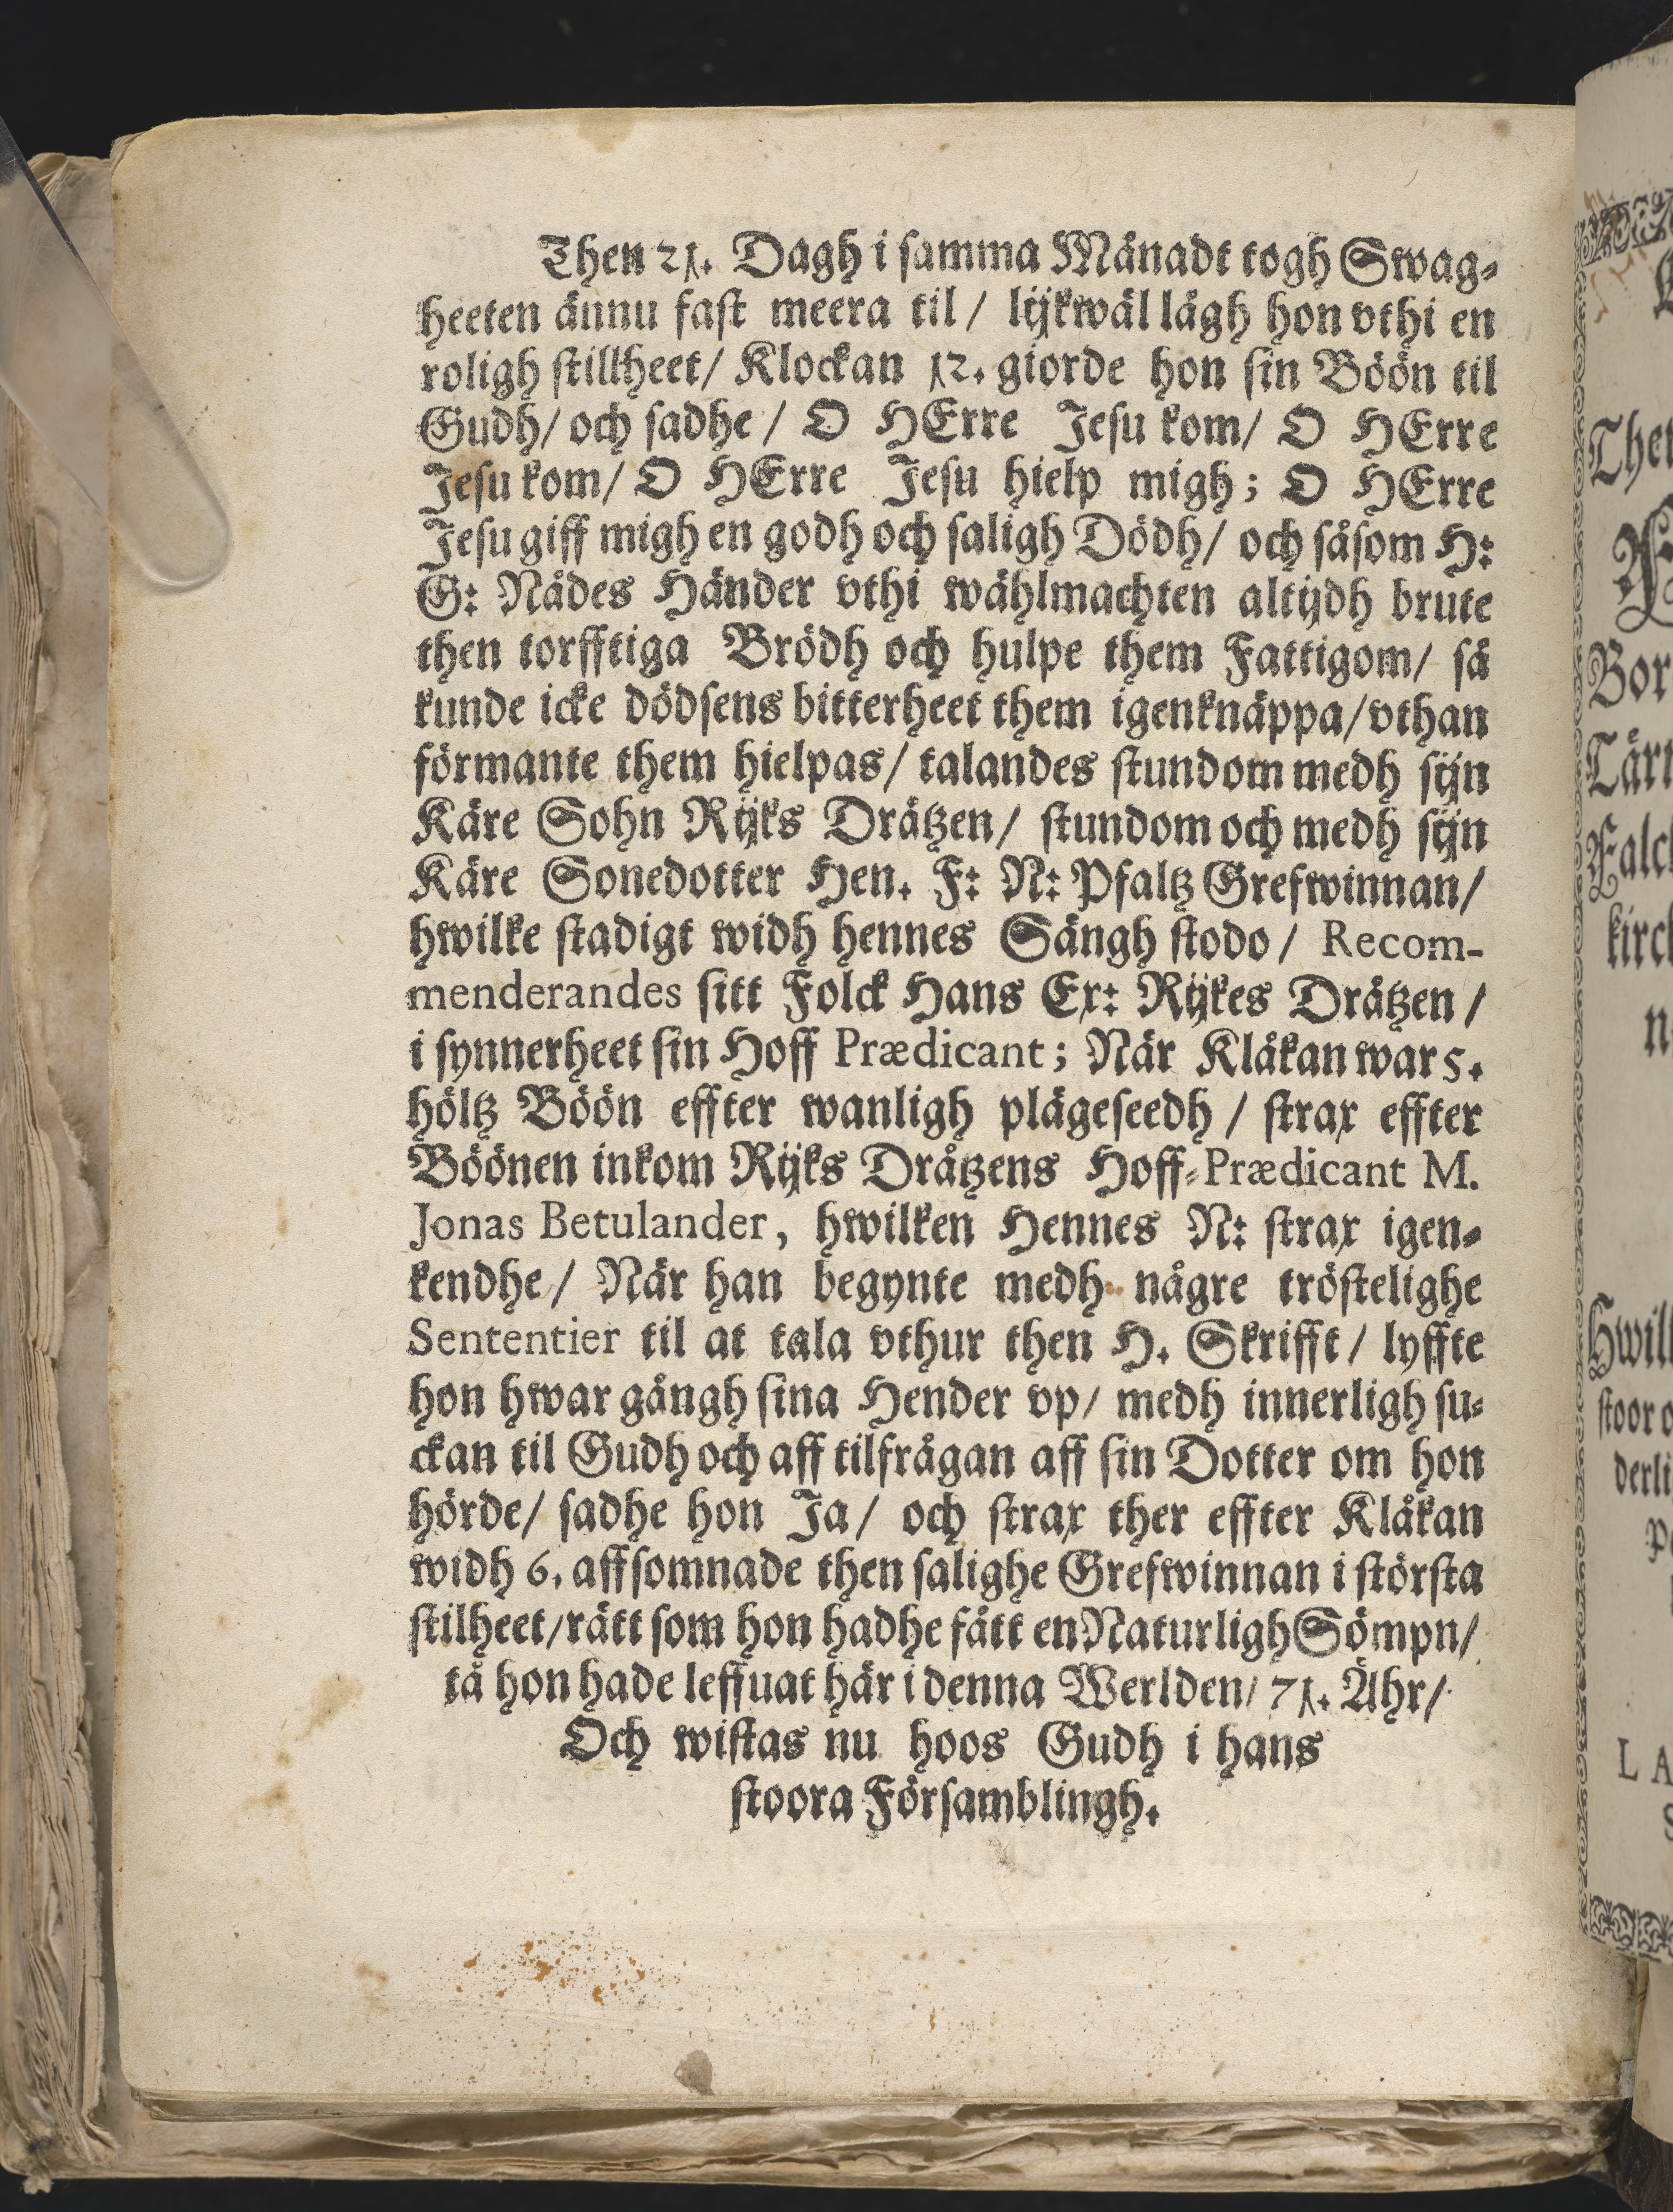 Then 21. Dagh i samma Månadt togh Swag-
heeten ännu fast meera til / lijkwäl lågh hon vthi en
roligh stillheet/ Klockan 12. giorde hon sin Böön til
Gudh/ och sadhe / O HErre Jesu kom/ O HErre
Jesu kom/ O HErre Jesu hielp migh; O HErre
Jesu giff migh en godh och saligh Dödh/ och såsom H:
G: Nådes Händer vthi wählmachten altijdh brute
then torfftiga Brödh och hulpe them Fattigom/ så
kunde icke dödsens bitterheet them igenknäppa/ vthan
förmante them hielpas/ talandes stundom medh sijn
Käre Sohn Rijks Drätzen/ stundom och medh sijn
Käre Sonedotter Hen. F: N: Pfaltz Grefwinnan/
hwilke stadigt widh hennes Sängh stodo / Recom-
menderandes sitt Folck Hans Ex: Rijkes Drätzen /
i synnerheet sin Hoff Prædicant; När Klåkan war 5.
höltz Böön effter wanligh plägeseedh / strax effter
Böönen inkom Rijks Dråtzens Hoff-Prædicant M.
Jonas Betulander, hwilken Hennes N: strax igen-
kendhe/ När han begynte medh någre tröstelighe
Sententier til at tala vthur then H. Skrifft / lyffte
hon hwar gångh sina Hender vp/ medh innerligh su-
ckan til Gudh och aff tilfrågan aff sin Dotter om hon
hörde/ sadhe hon Ja/ och strax ther effter Klåkan
widh 6. affsomnade then salighe Grefwinnan i största
stilheet/ rätt som hon hadhe fått en Naturligh Sömpn/
tå hon hade leffuat här i denna Werlden/ 71. Åhr/
Och wistas nu hoos Gudh i hans
stoora Församblingh.
Bor
kirc
Hwil
stoor
derli
L A